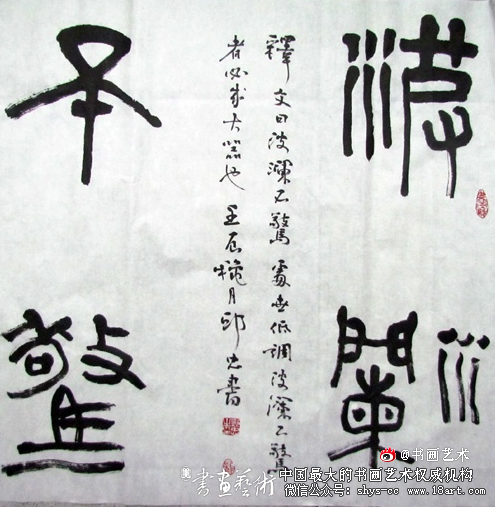 波瀾
不驚
釋文曰波瀾不驚處世低調波瀾不驚
者必成大器也 壬辰穐月邱忠書
@书画艺术
書画藝術
中国最大的书画艺术权威机构
微信公众号：shys-cc www.18art.com